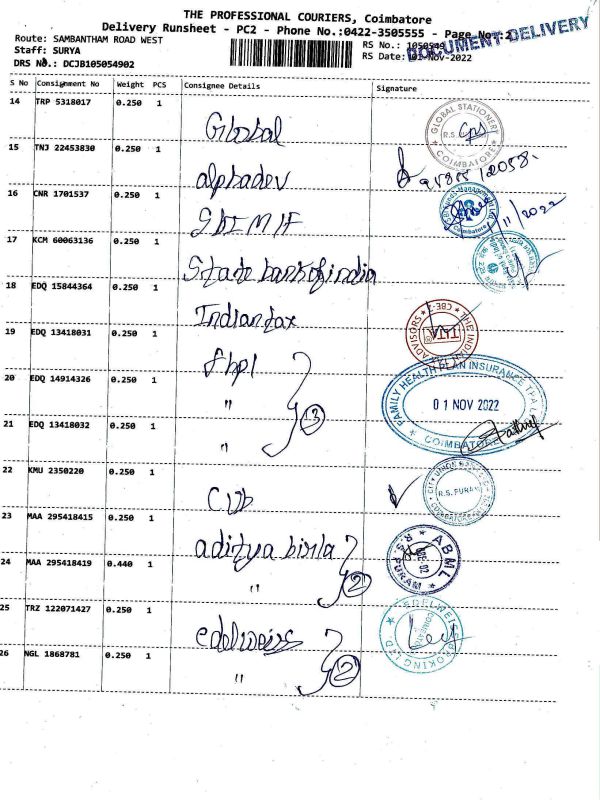 THE PROFESSIONAL COURIERS, Coimbatore
Delivery Runsheet - PC2 - Phone No.:0422-3505555 - Page No.:2
DOCUMENT DELIVERY
Route: SAMBANTHAM ROAD WEST
RS No.: 1050549
Staff: SURYA
RS Date: 01-Nov-2022
DRS No.: DCJB105054902
S No Consignment No Weight PCS Consignee Details Signature
14 TRP 5318017 0.250 1 Global
GLOBAL STATIONERY R.S. COIMBATORE
15 TNJ 22453830 0.250 1 alphadev
16 CNR 1701537 0.250 1 SBI M F
/11/2022
17 KCM 60063136 0.250 1 State bank of india
18 EDQ 15844364 0.250 1 Indian tax
ADVISORS THE INDIA CBE-2
19 EDQ 13418031 0.250 1 fhpl
20 EDQ 14914326 0.250 1 "
FAMILY HEALTH PLAN INSURANCE TPA L
01 NOV 2022
COIMBATORE
21 EDQ 13418032 0.250 1 " 3
22 KMU 2350220 0.250 1 CUB
CITY UNION BANK R.S. PURAM COIMBATORE
23 MAA 295418415 0.250 1 aditya birla
ABML R.S. PURAM
24 MAA 295418419 0.440 1 " 2
25 TRZ 122071427 0.250 1 edelweiss
EDELWEISS BROKING LTD.
26 NGL 1868781 0.250 1 " 2